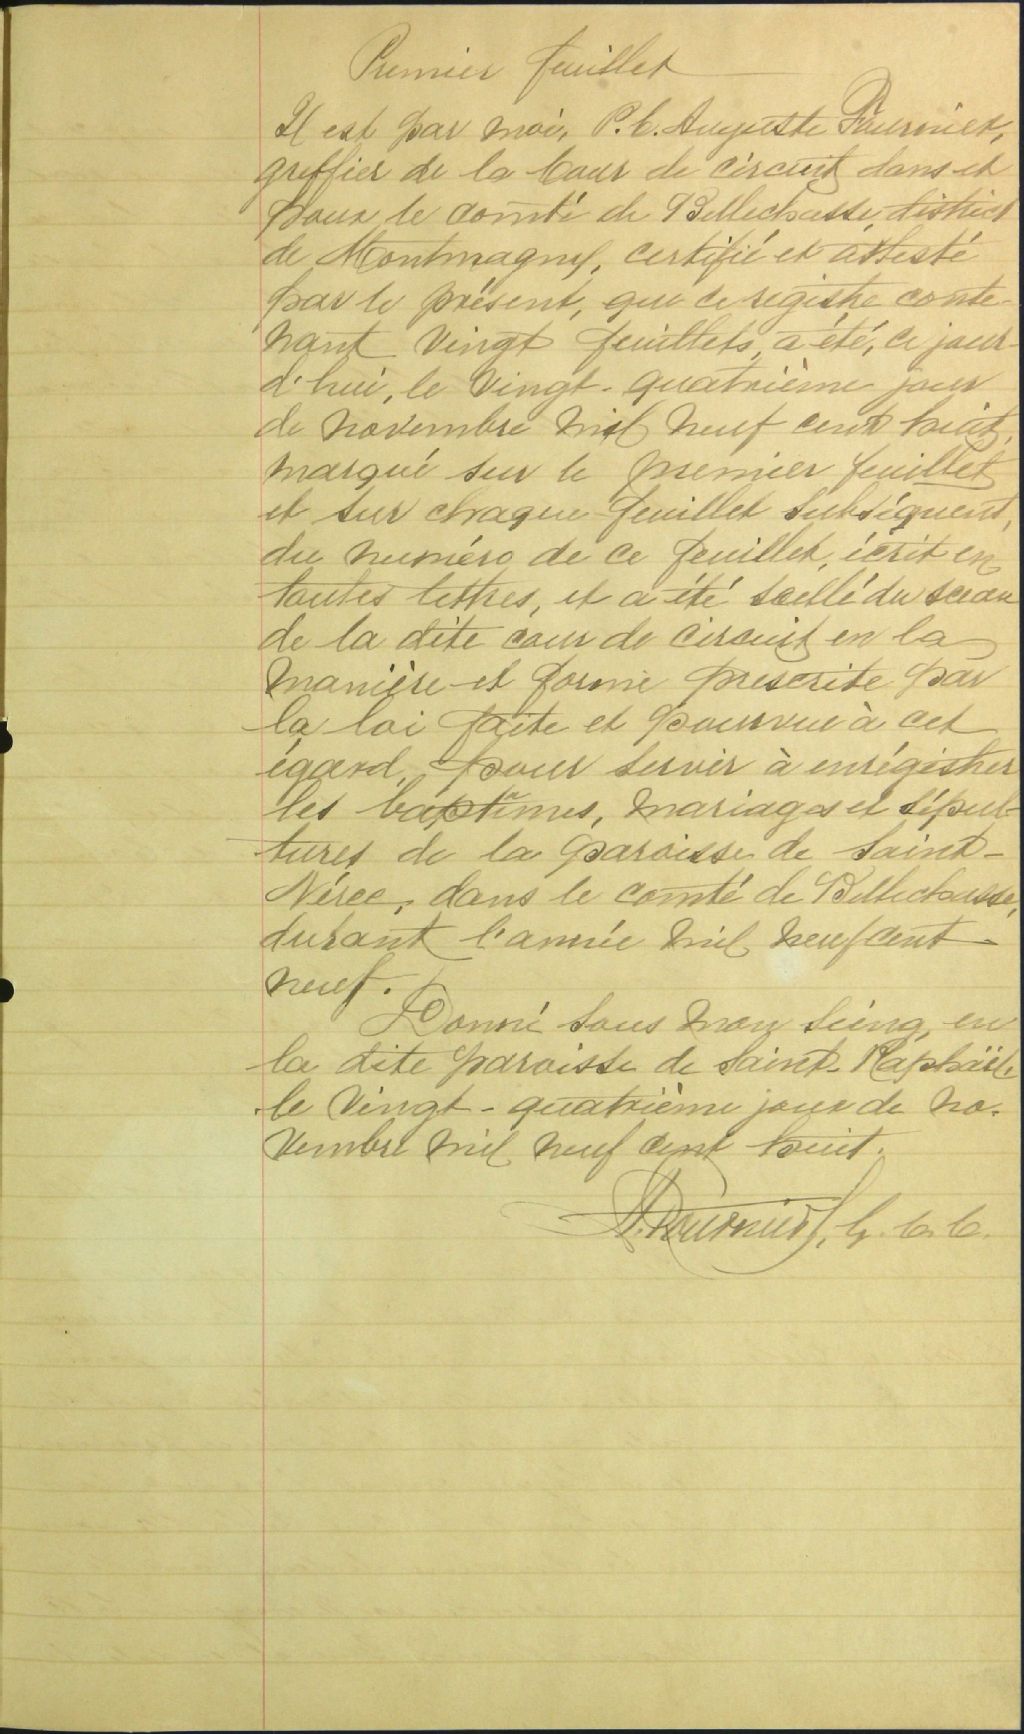 Premier feuillet
Il est par moi, P. C. Auguste Fournier,
greffier de la Cour de circuit dans et
pour le comté de Bellechasse, district
de Montmagny, certifié et attesté
par le présent, que ce registre conte-
nant vingt feuillets, a été, ce jour-
d'hui, le vingt-quatrième jour
de novembre mil neuf cent huit,
marqué sur le premier feuillet
et sur chaque feuillet subséquent,
du numéro de ce feuillet, écrit en
toutes lettres, et a été scellé du sceau
de la dite cour de circuit en la
manière et forme prescrite par
la loi faite et pourvue à cet
égard, pour servir à enrégistrer
les baptêmes, mariages et sépul-
tures de la paroisse de Saint-
Nérée, dans le comté de Bellechasse,
durant l'année mil neuf cent
neuf.
Donné sous mon seing, en
la dite paroisse de Saint-Raphaël
le vingt-quatrième jour de no-
vembre mil neuf cent huit.
A. Fournier, G. C. C.